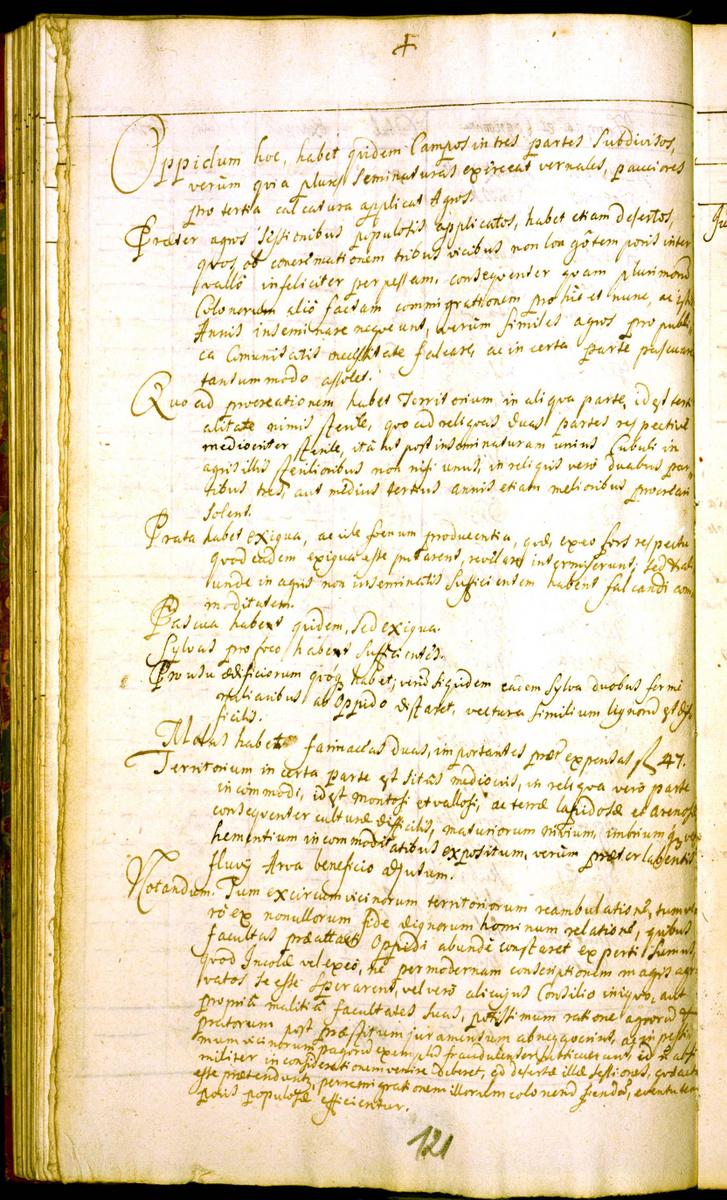 Oppidum hoc, habet quidem Campos in tres partes Subdivisos,
verùm quia plures Seminaturas exerceat vernales, pauciores
pro tertia calcatura applicat Agros.
Præter agros Sessionibus populosis applicatos, habet etiam desertos,
quos ob concremationem tribus vicibus non longô temporis inter
vallô infeliciter perpessam, consequenter quam plurimorũ
Colonorum aliò factam commigrationem pro hic et nunc, ac
Annis inseminare nequeunt, verùm similes agros pro publi
ca Comunitatis necessitate falcare, ac in certa parte pascuare
tantummodo assolet.
Quo ad procreationem habet Territorium in aliqua parte, id est terti
alitate nimis sterile, quo ad reliquas duas partes respectivè
mediocriter sterile, ità ut post inseminaturam unius Cubuli in
agris illis sterilioribus non nisi unus, in reliquis verò duabus par
tibus tres, aut medius tertius annis etiam melioribus procreari
solent.
Prata habet exiqua, ac vile foenum producentia, quæ, ex eo fors respectu
quod eadem exigua esse putarent, revelare intermiserunt; sed
unde in agris non inseminatis sufficientem habent falcandi com
moditatem.
Pascua habent quidem, sed exiqua.
Sylvas pro foco habent sufficientes.
Pro usu ædificiorum quoq habet, verũ siquidem eadem Sylva duobus fermè
milliaribus ab Oppido distaret, vectura similium lignorũ est dif
ficilis.
Molas habet farinaceas duas, importantes præter expensas fl 47.
Territorium in certa parte est sitûs mediocris, in reliqua verò parte
incommodi, id est montosi et vallosi, ac terræ lapidosæ et arenosæ
consequenter culturæ difficilis, maturiorum nivium, imbrium q
hementium incommoditatibus expositum, verùm præterlabentis
fluvij Arva beneficio adjutum.
Notandum. Tum ex circumvicinorum territoriorum reambulatione, tum ve
rò ex nonullorum fide dignorum hominum relatione, quibus
facultas præattacti Oppidi abundè constaret experti sumus,
quod Incolæ vel ex eo, ne per modernam conscriptionem magis agra
vatos se esse sperarent, vel verò alicujus Consilio iniquo, aut
propriâ malitiâ facultates suas, potissimum ratione agrorũ
pratorum post præstitum juramentum abnegaverint, ac in pessi
mum vicinorum pagorũ exemplũ fraudulenter subticuerunt,
militer in considerationem venire deberet, qd desertæ illæ sessiones,
esse prætendunt, per remigrationem illorum colonorũ fiendã, eventu tem
poris populosæ efficientur.
121